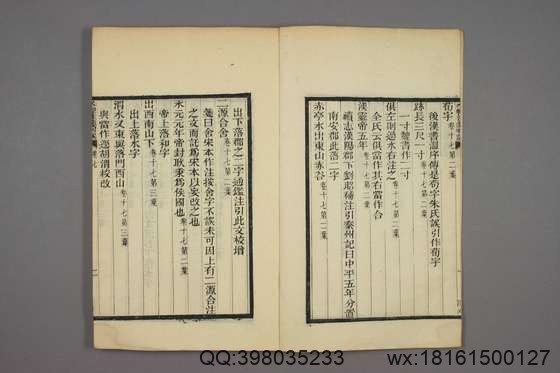 荀字 卷十七第二葉
後漢書盜序傳是荀字朱氏誤引作苟字
跡長三尺一寸 卷十七第二葉
一寸魏書作二寸
俱左則過水右注之 卷十七第二葉
全氏云俱當作其右當作合
漢靈帝五年 卷十七第二葉
續志漢陽郡下劉昭補注引秦州記曰中平五年分置
南安郡此落二字
赤亭水出東山赤谷 卷十七第二葉
出下落郡之二字通鑑注引此文校增
二源合舍 卷十七第二葉
箋曰舍宋本作注按舍字不誤未可因上有二源合注
之文而託爲宋本以妄改之也
永元元年帝封耿秉爲侯國也 卷十七第二葉
帝上落和字
出西南山下 卷十七第三葉
出上落水字
渭水又東與落門西山 卷十七第三葉
與當作逕胡渭校改
QQ:398035233
wx:18161500127